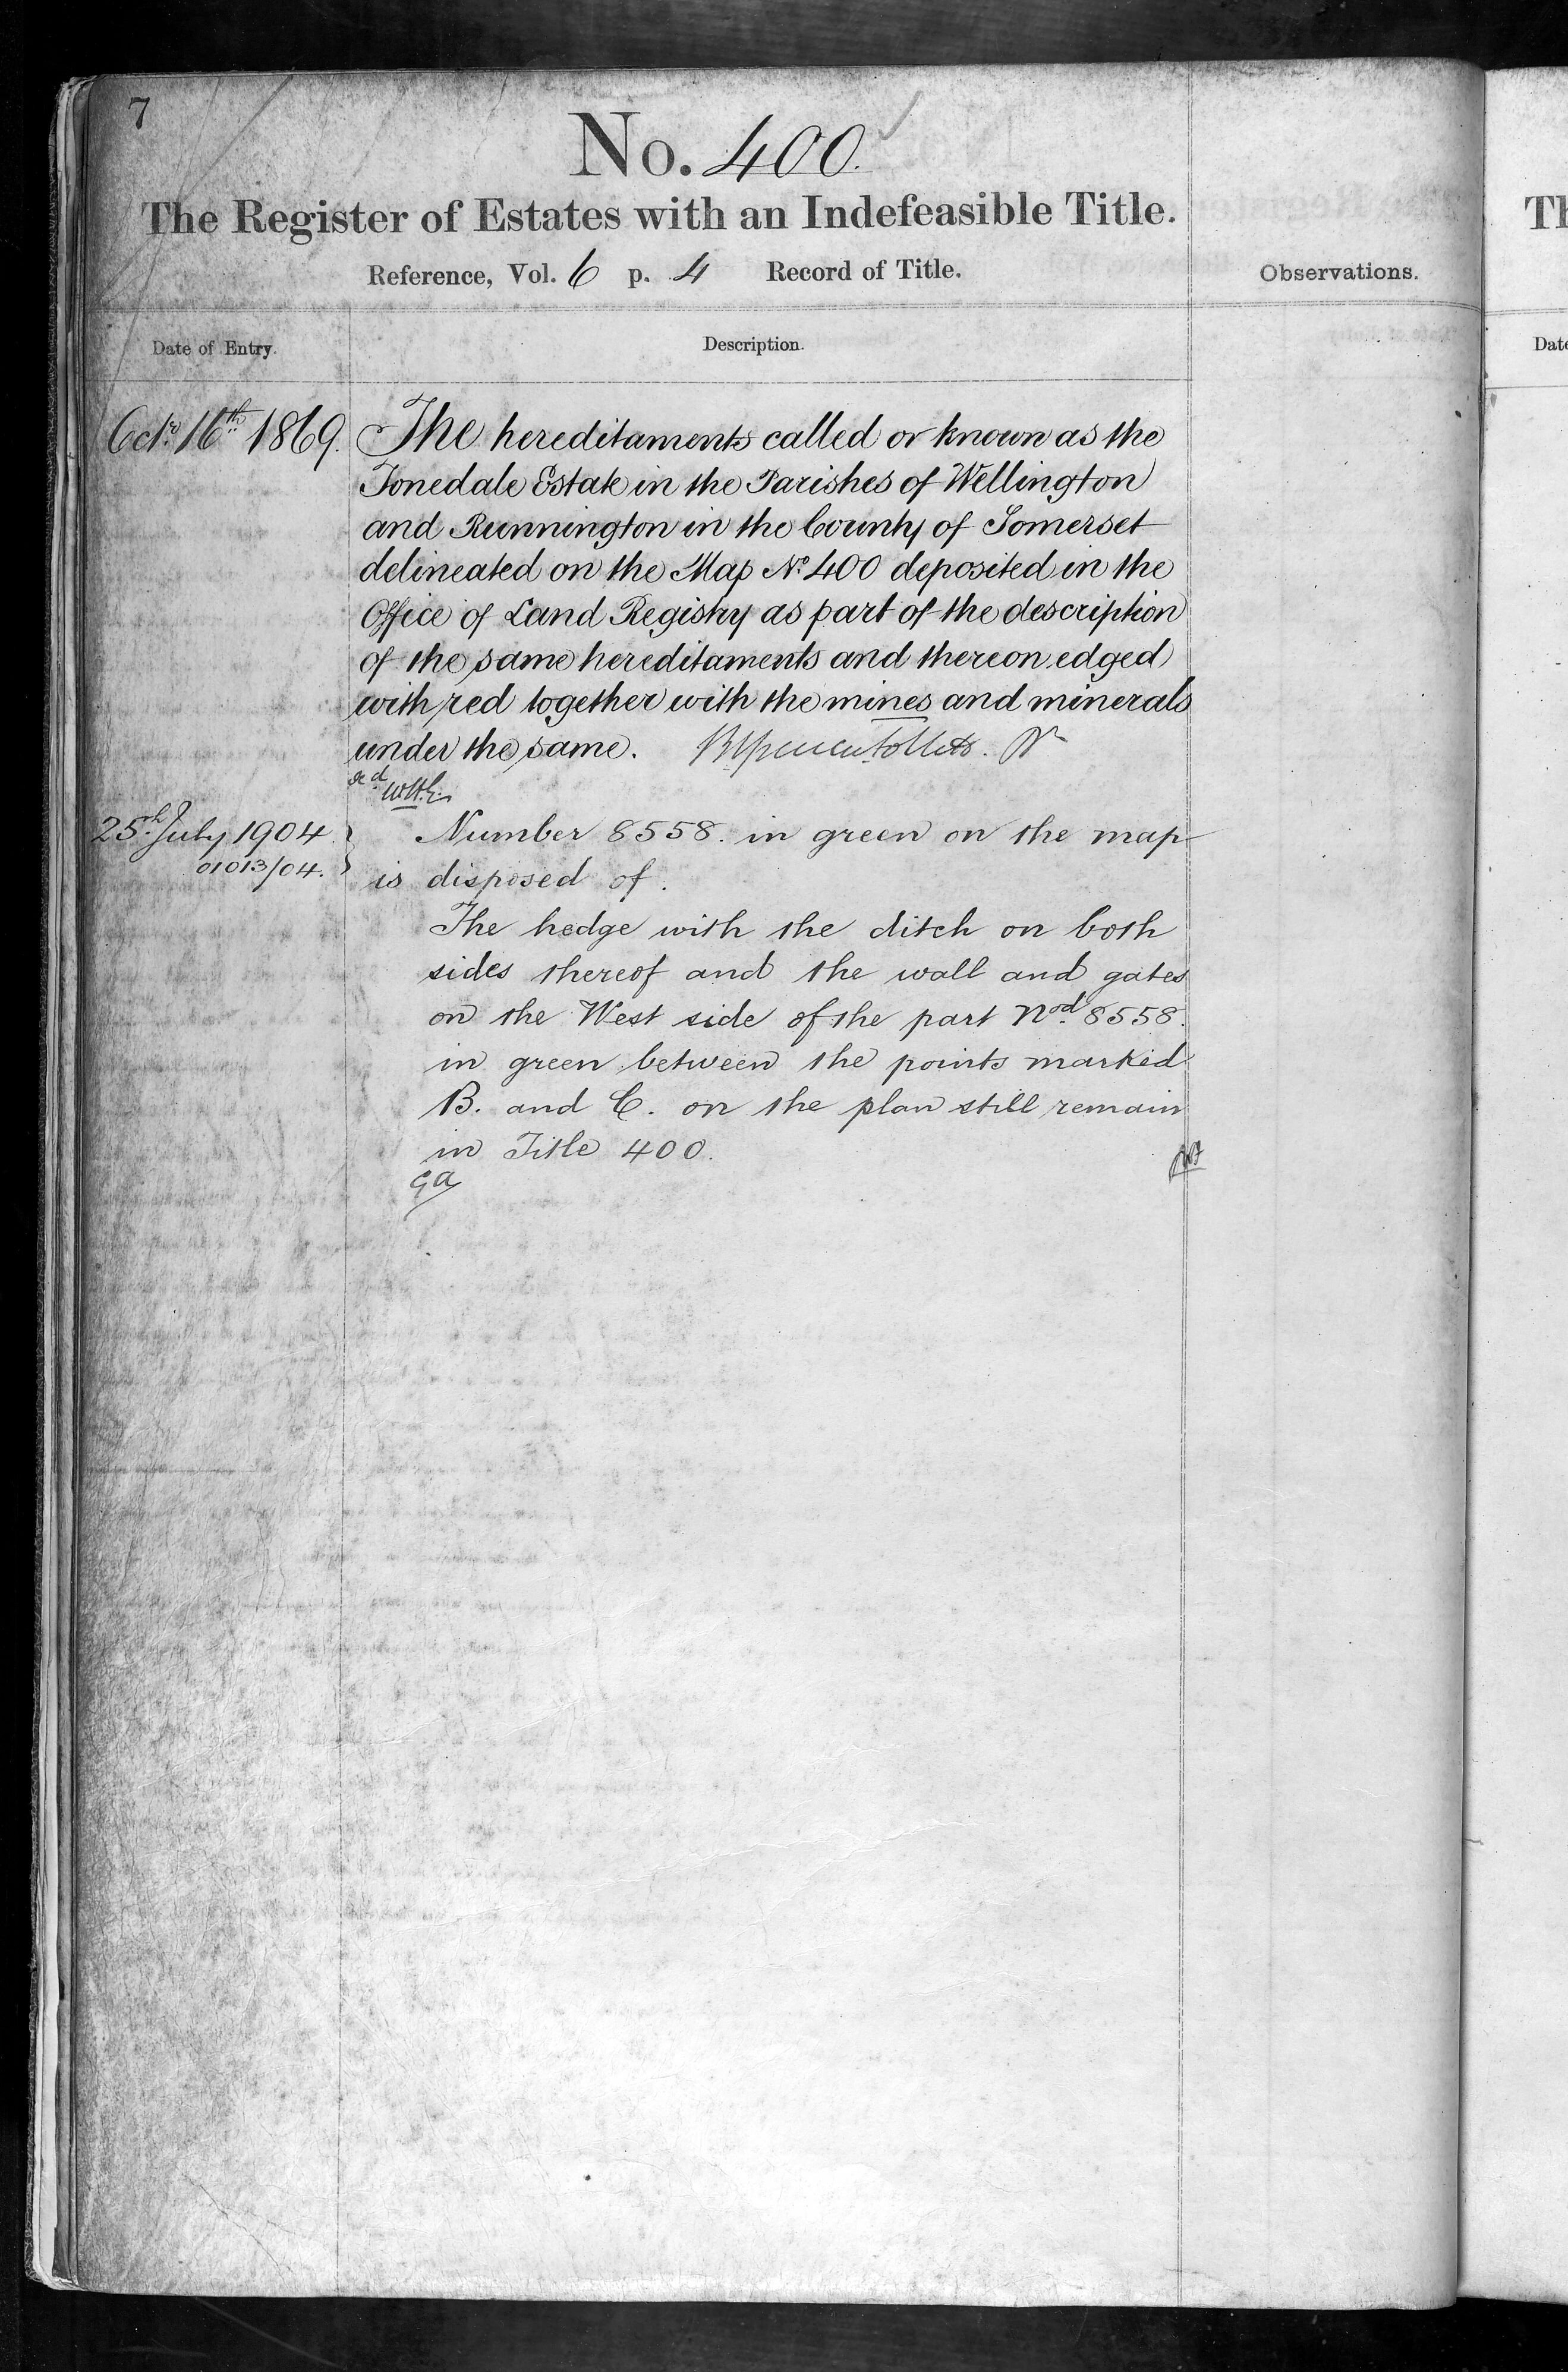 7
No. 400.
The Register of Estates with an Indefeasible Title.
Reference, Vol. 6 p. 4 Record of Title.
Observations.
Date of Entry.
Description.
Octr. 16th 1869.
The hereditaments called or known as the
Tonedale Estate in the Parishes of Wellington
and Runnington in the County of Somerset
delineated on the Map No. 400 deposited in the
Office of Land Registry as part of the description
of the same hereditaments and thereon edged
with red together with the mines and minerals
under the same.
25th July 1904
01013/04.
Number 8558. in green on the map
is disposed of.
The hedge with the ditch on both
sides thereof and the wall and gates
on the West side of the part nod. 8558.
in green between the points marked
B. and C. on the plan still remain
in Title 400.
Th
Date